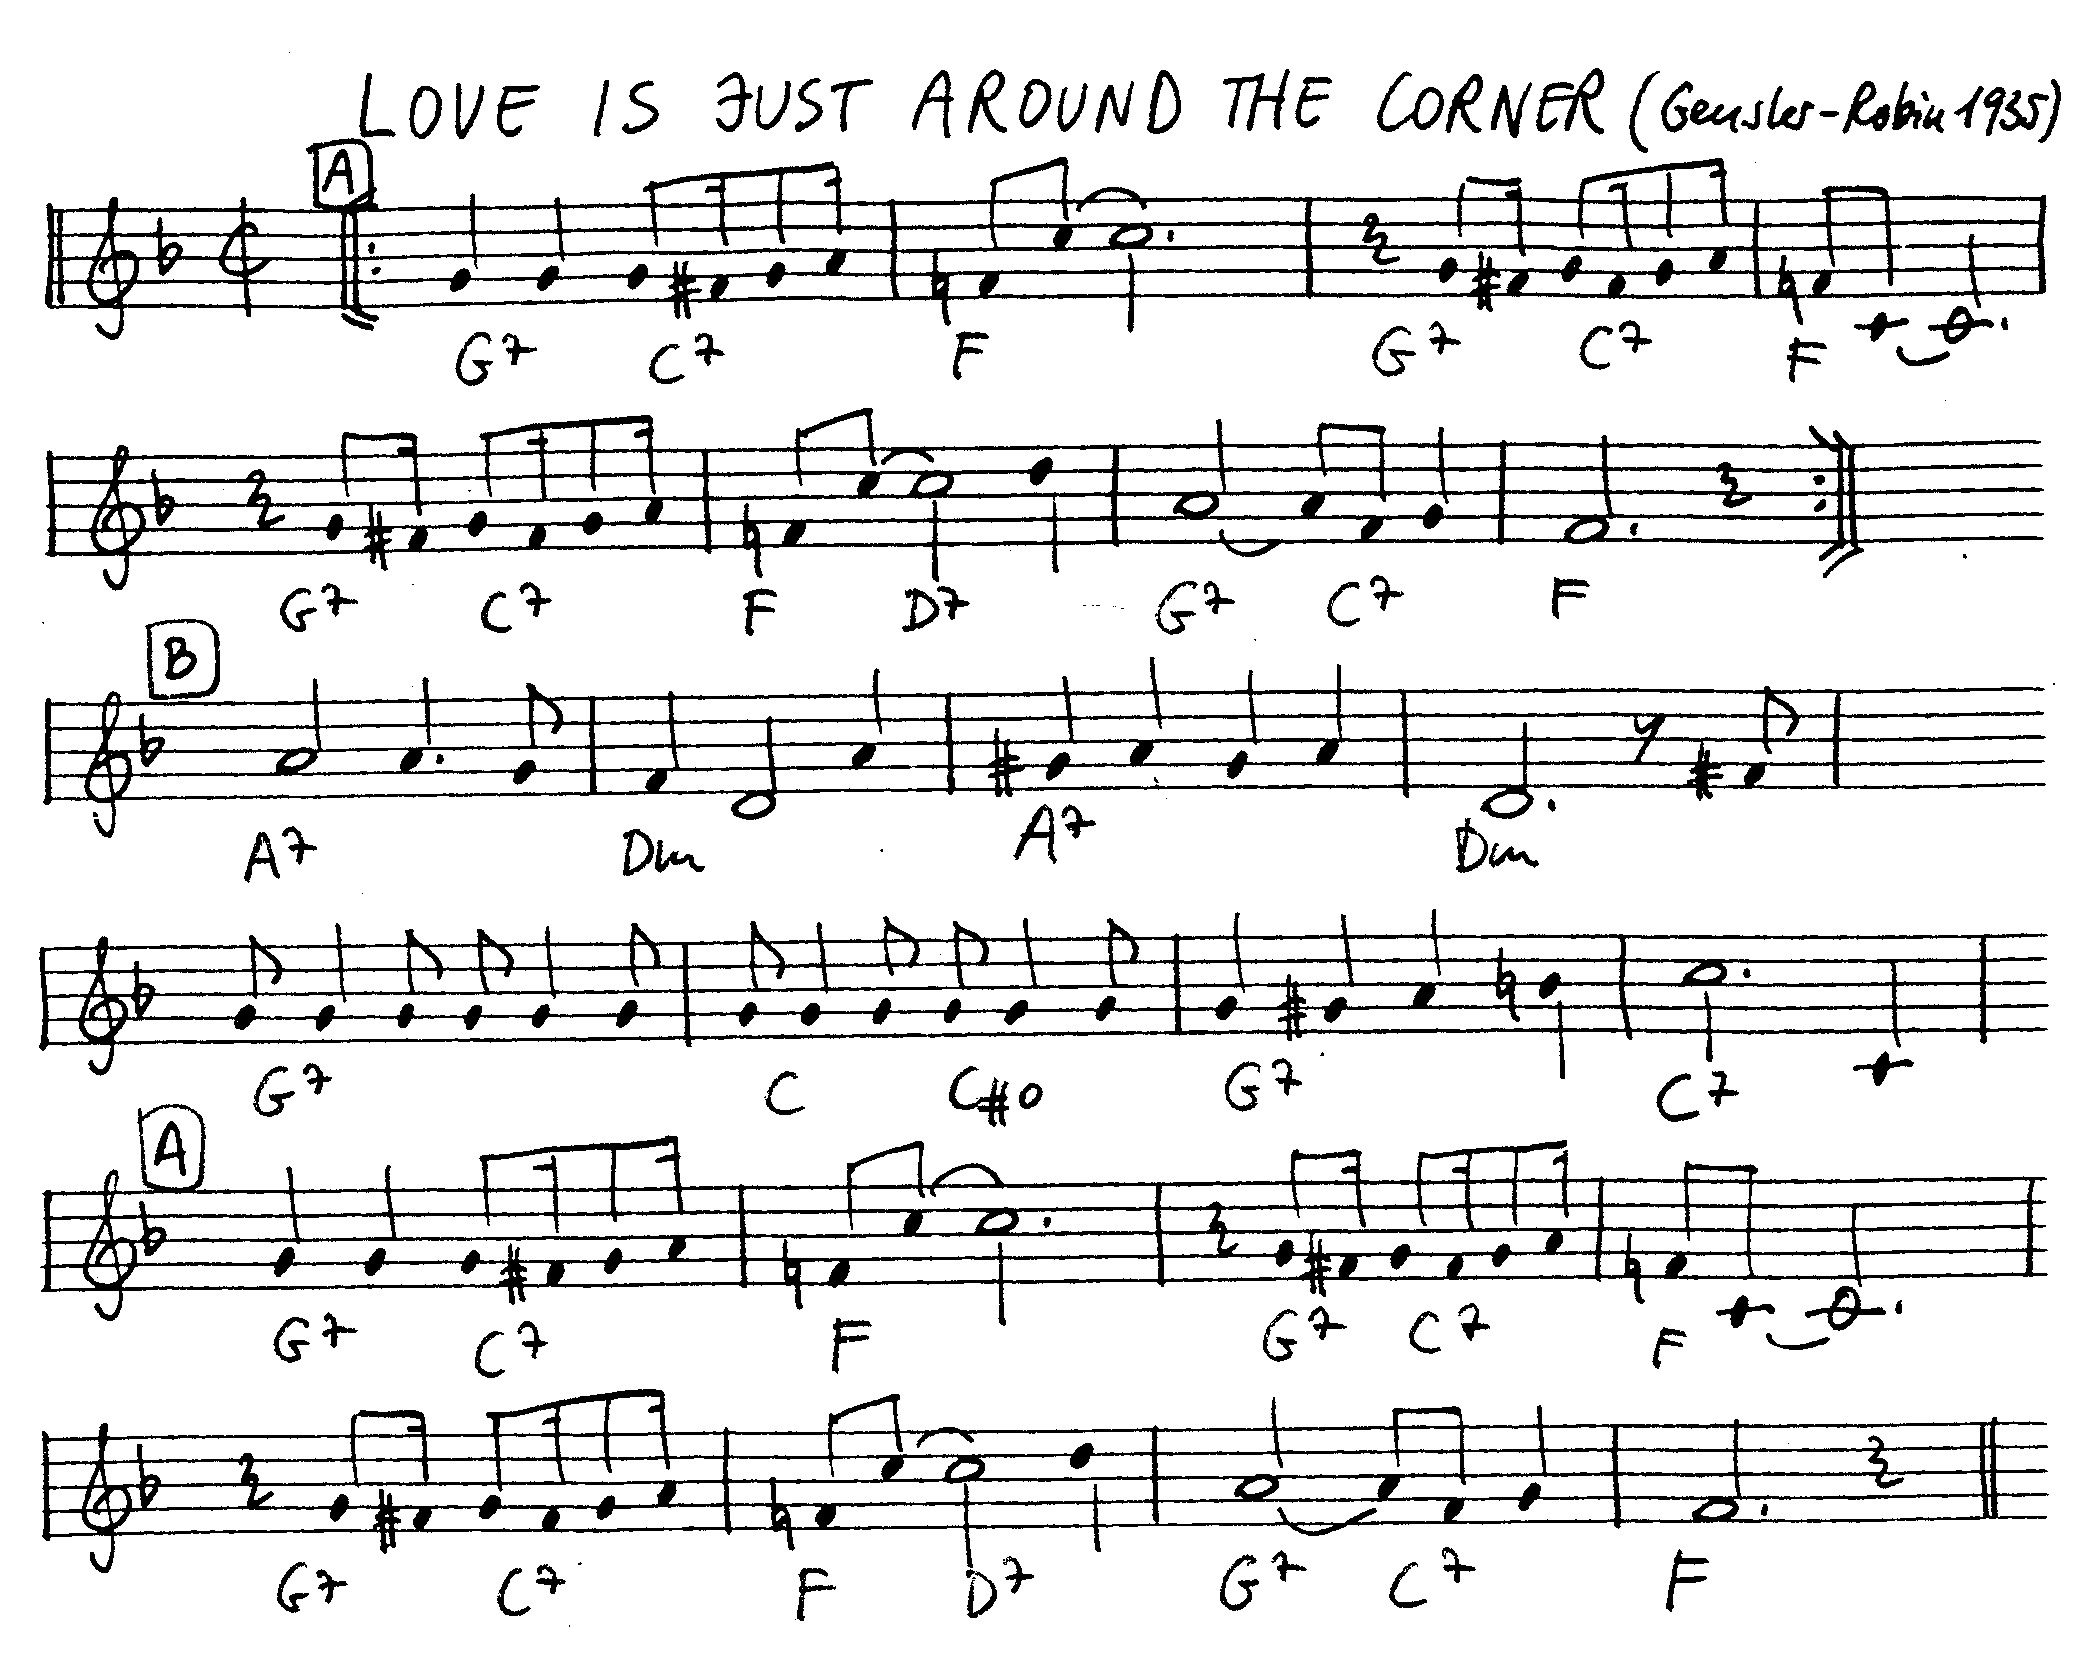 LOVE IS JUST AROUND THE CORNER (Gensler-Robin 1935)
A
G7 C7 F G7 C7 F
G7 C7 F D7 G7 C7 F
B
A7 Dm A7 Dm
G7 C C#o G7 C7
A
G7 C7 F G7 C7 F
G7 C7 F D7 G7 C7 F